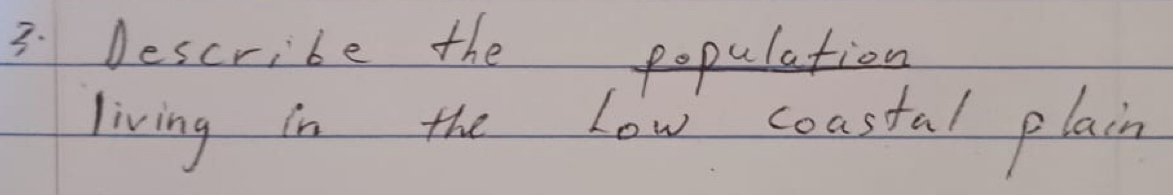 3. Describe the population
living in the Low coastal plain